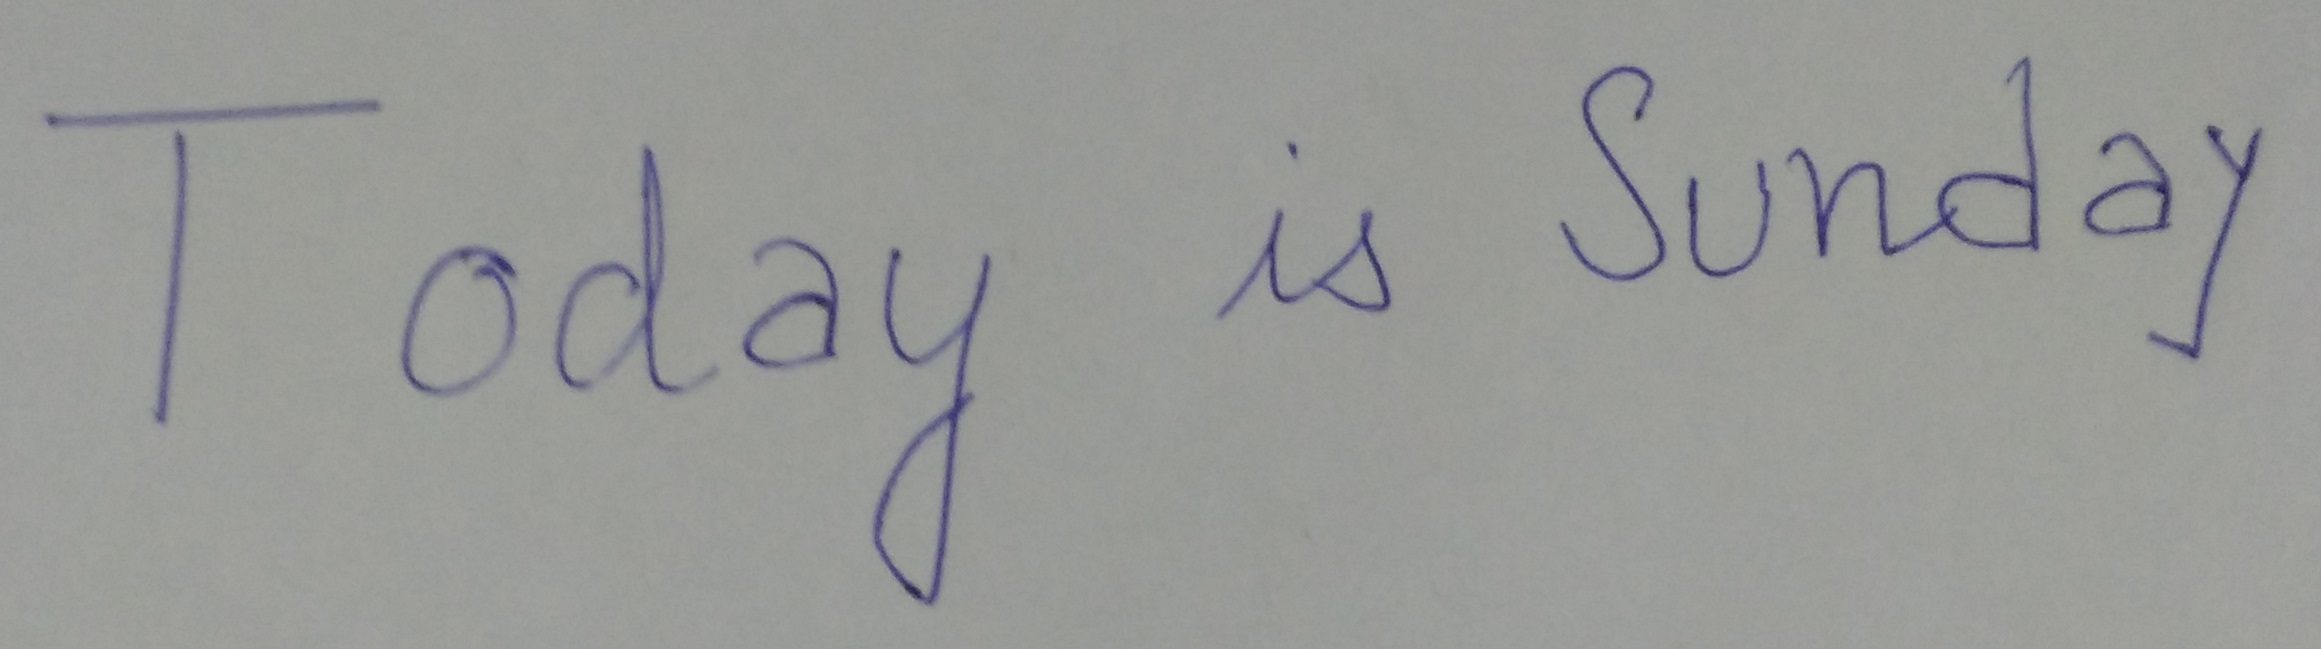 Today is Sunday